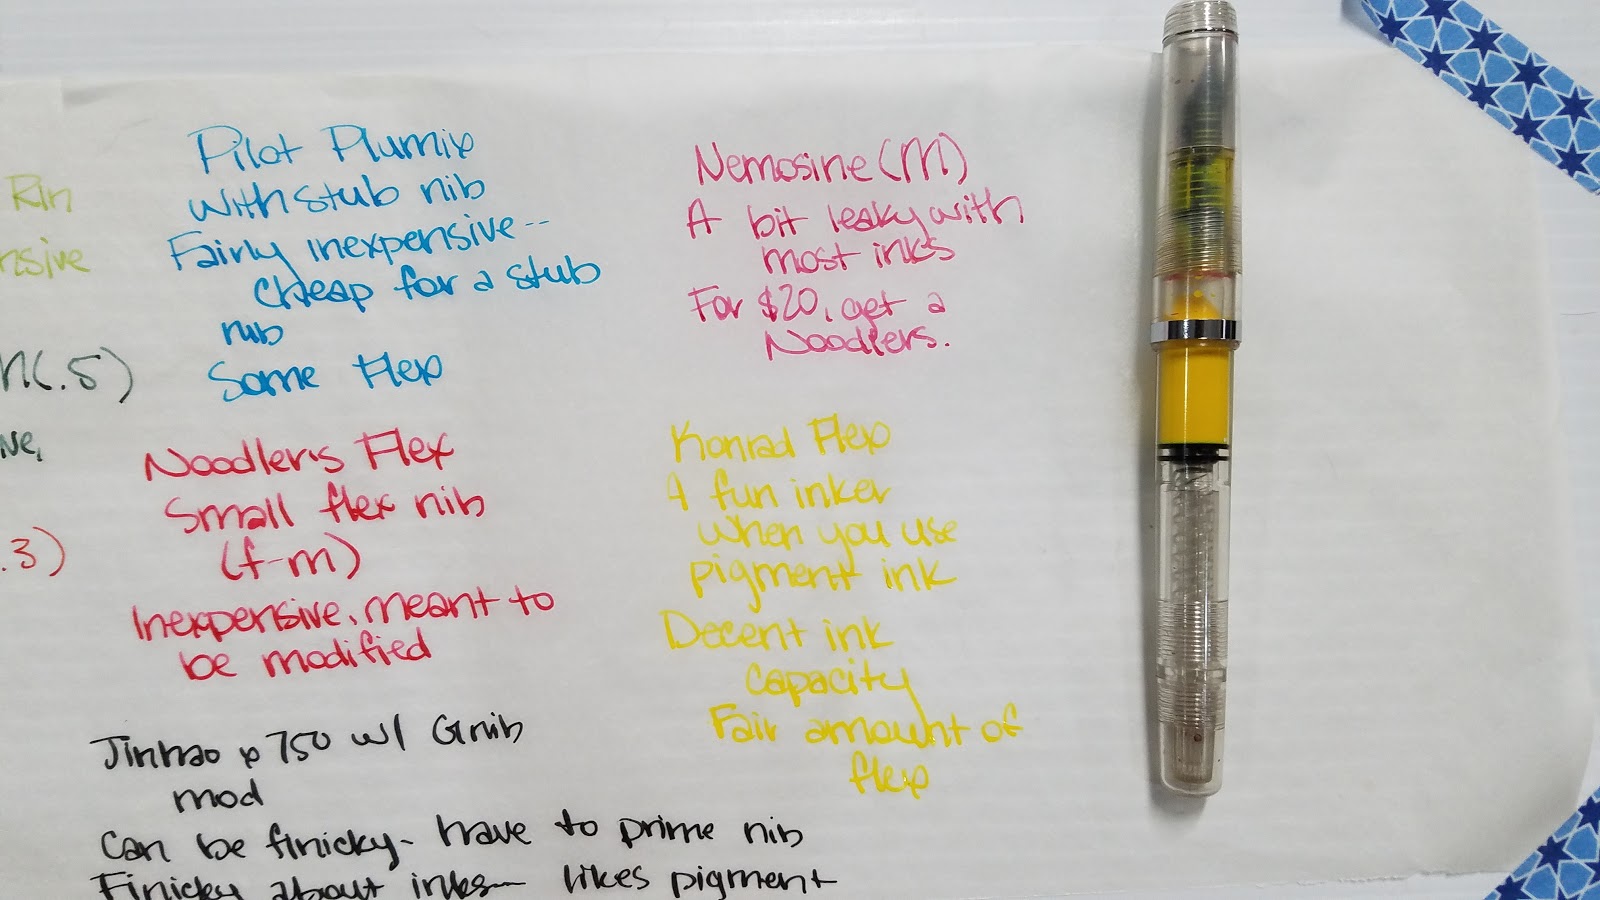 Rin
nsive
n(.5)
ve,
.3)
Pilot Plumix
with stub nib
Fairly inexpensive--
cheap for a stub
nib
Some Flex
Noodler's Flex
Small flex nib
(f-m)
Inexpensive, meant to
be modified
Jinhao x 750 w/ G nib
mod
Can be finicky- have to prime nib
Finicky about inks- likes pigment
Nemosine (M)
A bit leaky with
most inks
For $20, get a
Noodlers.
Konrad Flex
A fun inker
when you use
pigment ink
Decent ink
capacity
Fair amount of
flex